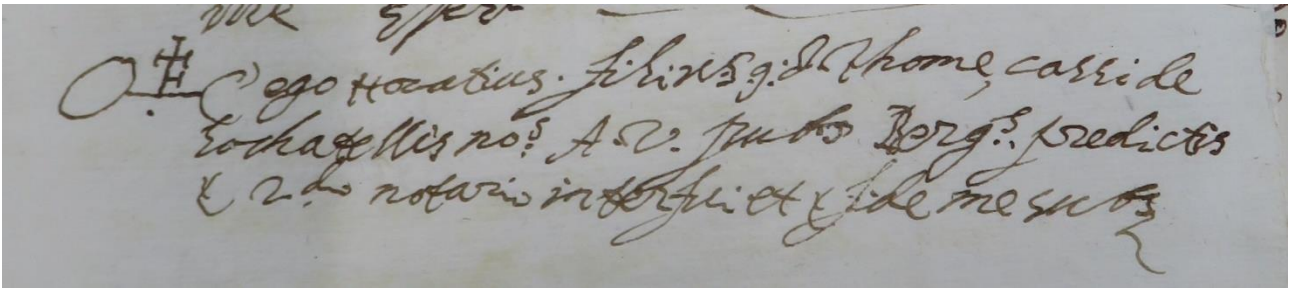 ego Horatius. filius q. D. Thome, cassi de
Rochapellis no.s A. V. pub.s Berg.s predictis
2.do notario interfui et x fide me subs